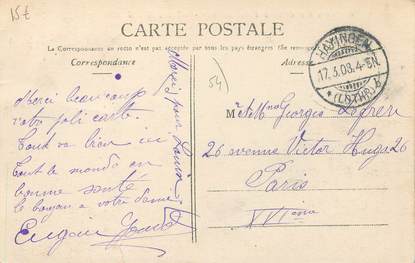 15€
CARTE POSTALE
La Correspondance au recto n'est pas acceptée par tous les pays étrangers (Se renseigner
Correspondance
Adresse
HAYINGEN
17.3.08.4-5N.
*(LOTHR.)b
54)
Merci pour Louise
Merci beaucoup
votre joli carte.
Tout va bien ici
Tout le monde en
bonne santé
le
a votre Dame
Eugène
Mr et Mme Georges
26 avenue Victor Hugo 26
Paris
XVIème